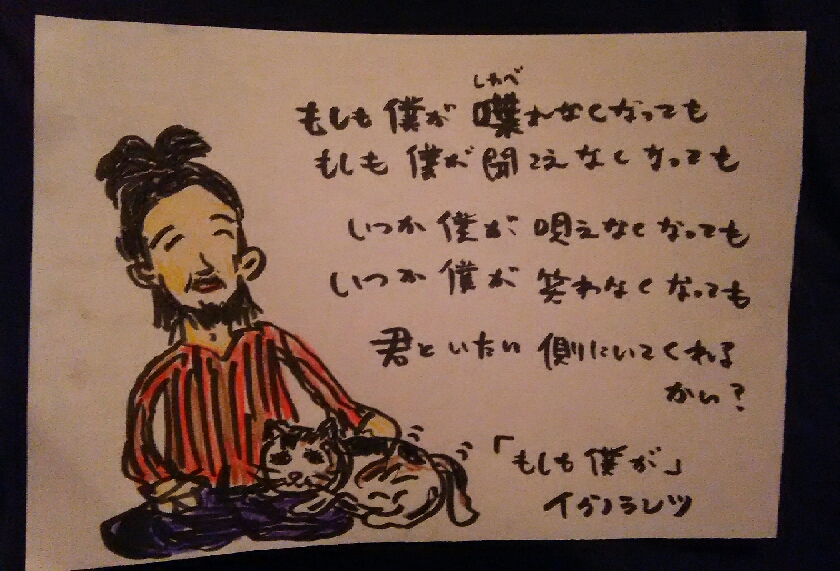 しゃべ
もしも僕が喋れなくなっても
もしも僕が聞こえなくなっても
いつか僕が唄えなくなっても
いつか僕が笑わなくなっても
君といたい側にいてくれる
かい?
「もしも僕が」